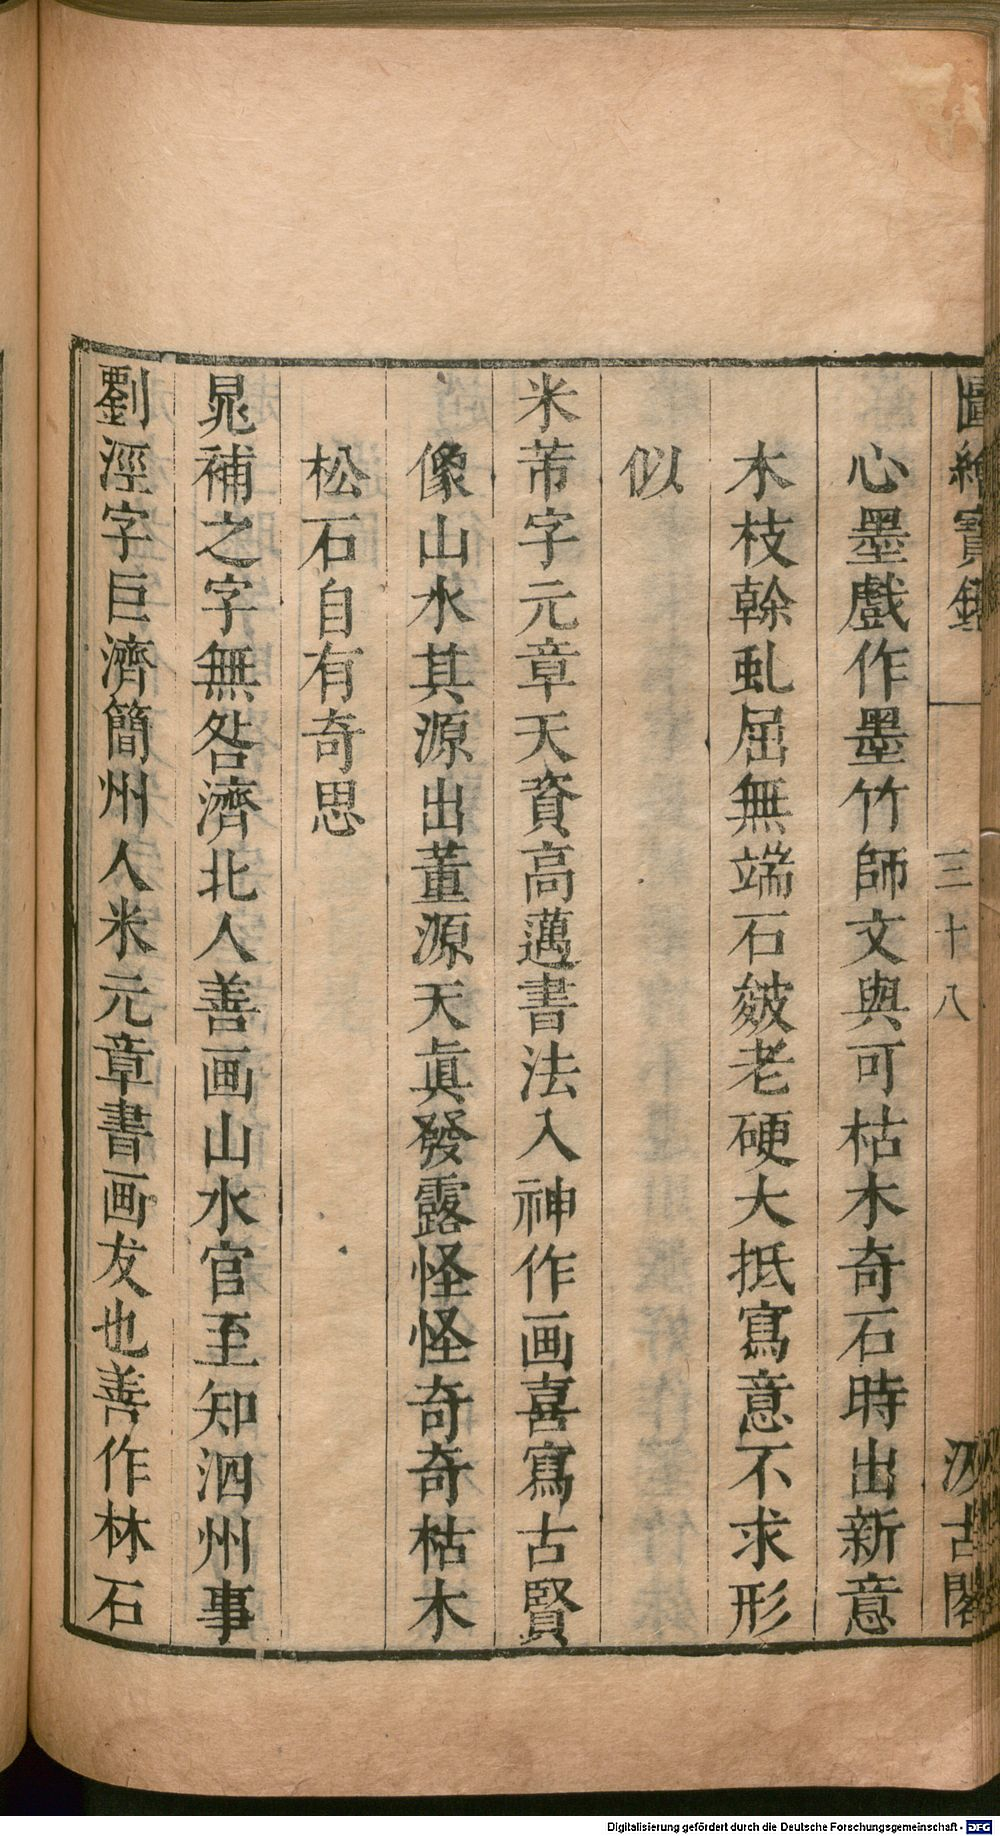 圖繪寶鑑 三十八 汲古閣
心墨戲作墨竹師文與可枯木奇石時出新意
木枝榦虬屈無端石皴老硬大抵寫意不求形
似
米芾字元章天資高邁書法入神作画喜寫古賢
像山水其源出董源天眞發露怪怪奇奇枯木
松石自有奇思
晁補之字無咎濟北人善画山水官至知泗州事
劉涇字巨濟簡州人米元章書画友也善作林石
Digitalisierung gefördert durch die Deutsche Forschungsgemeinschaft - DFG